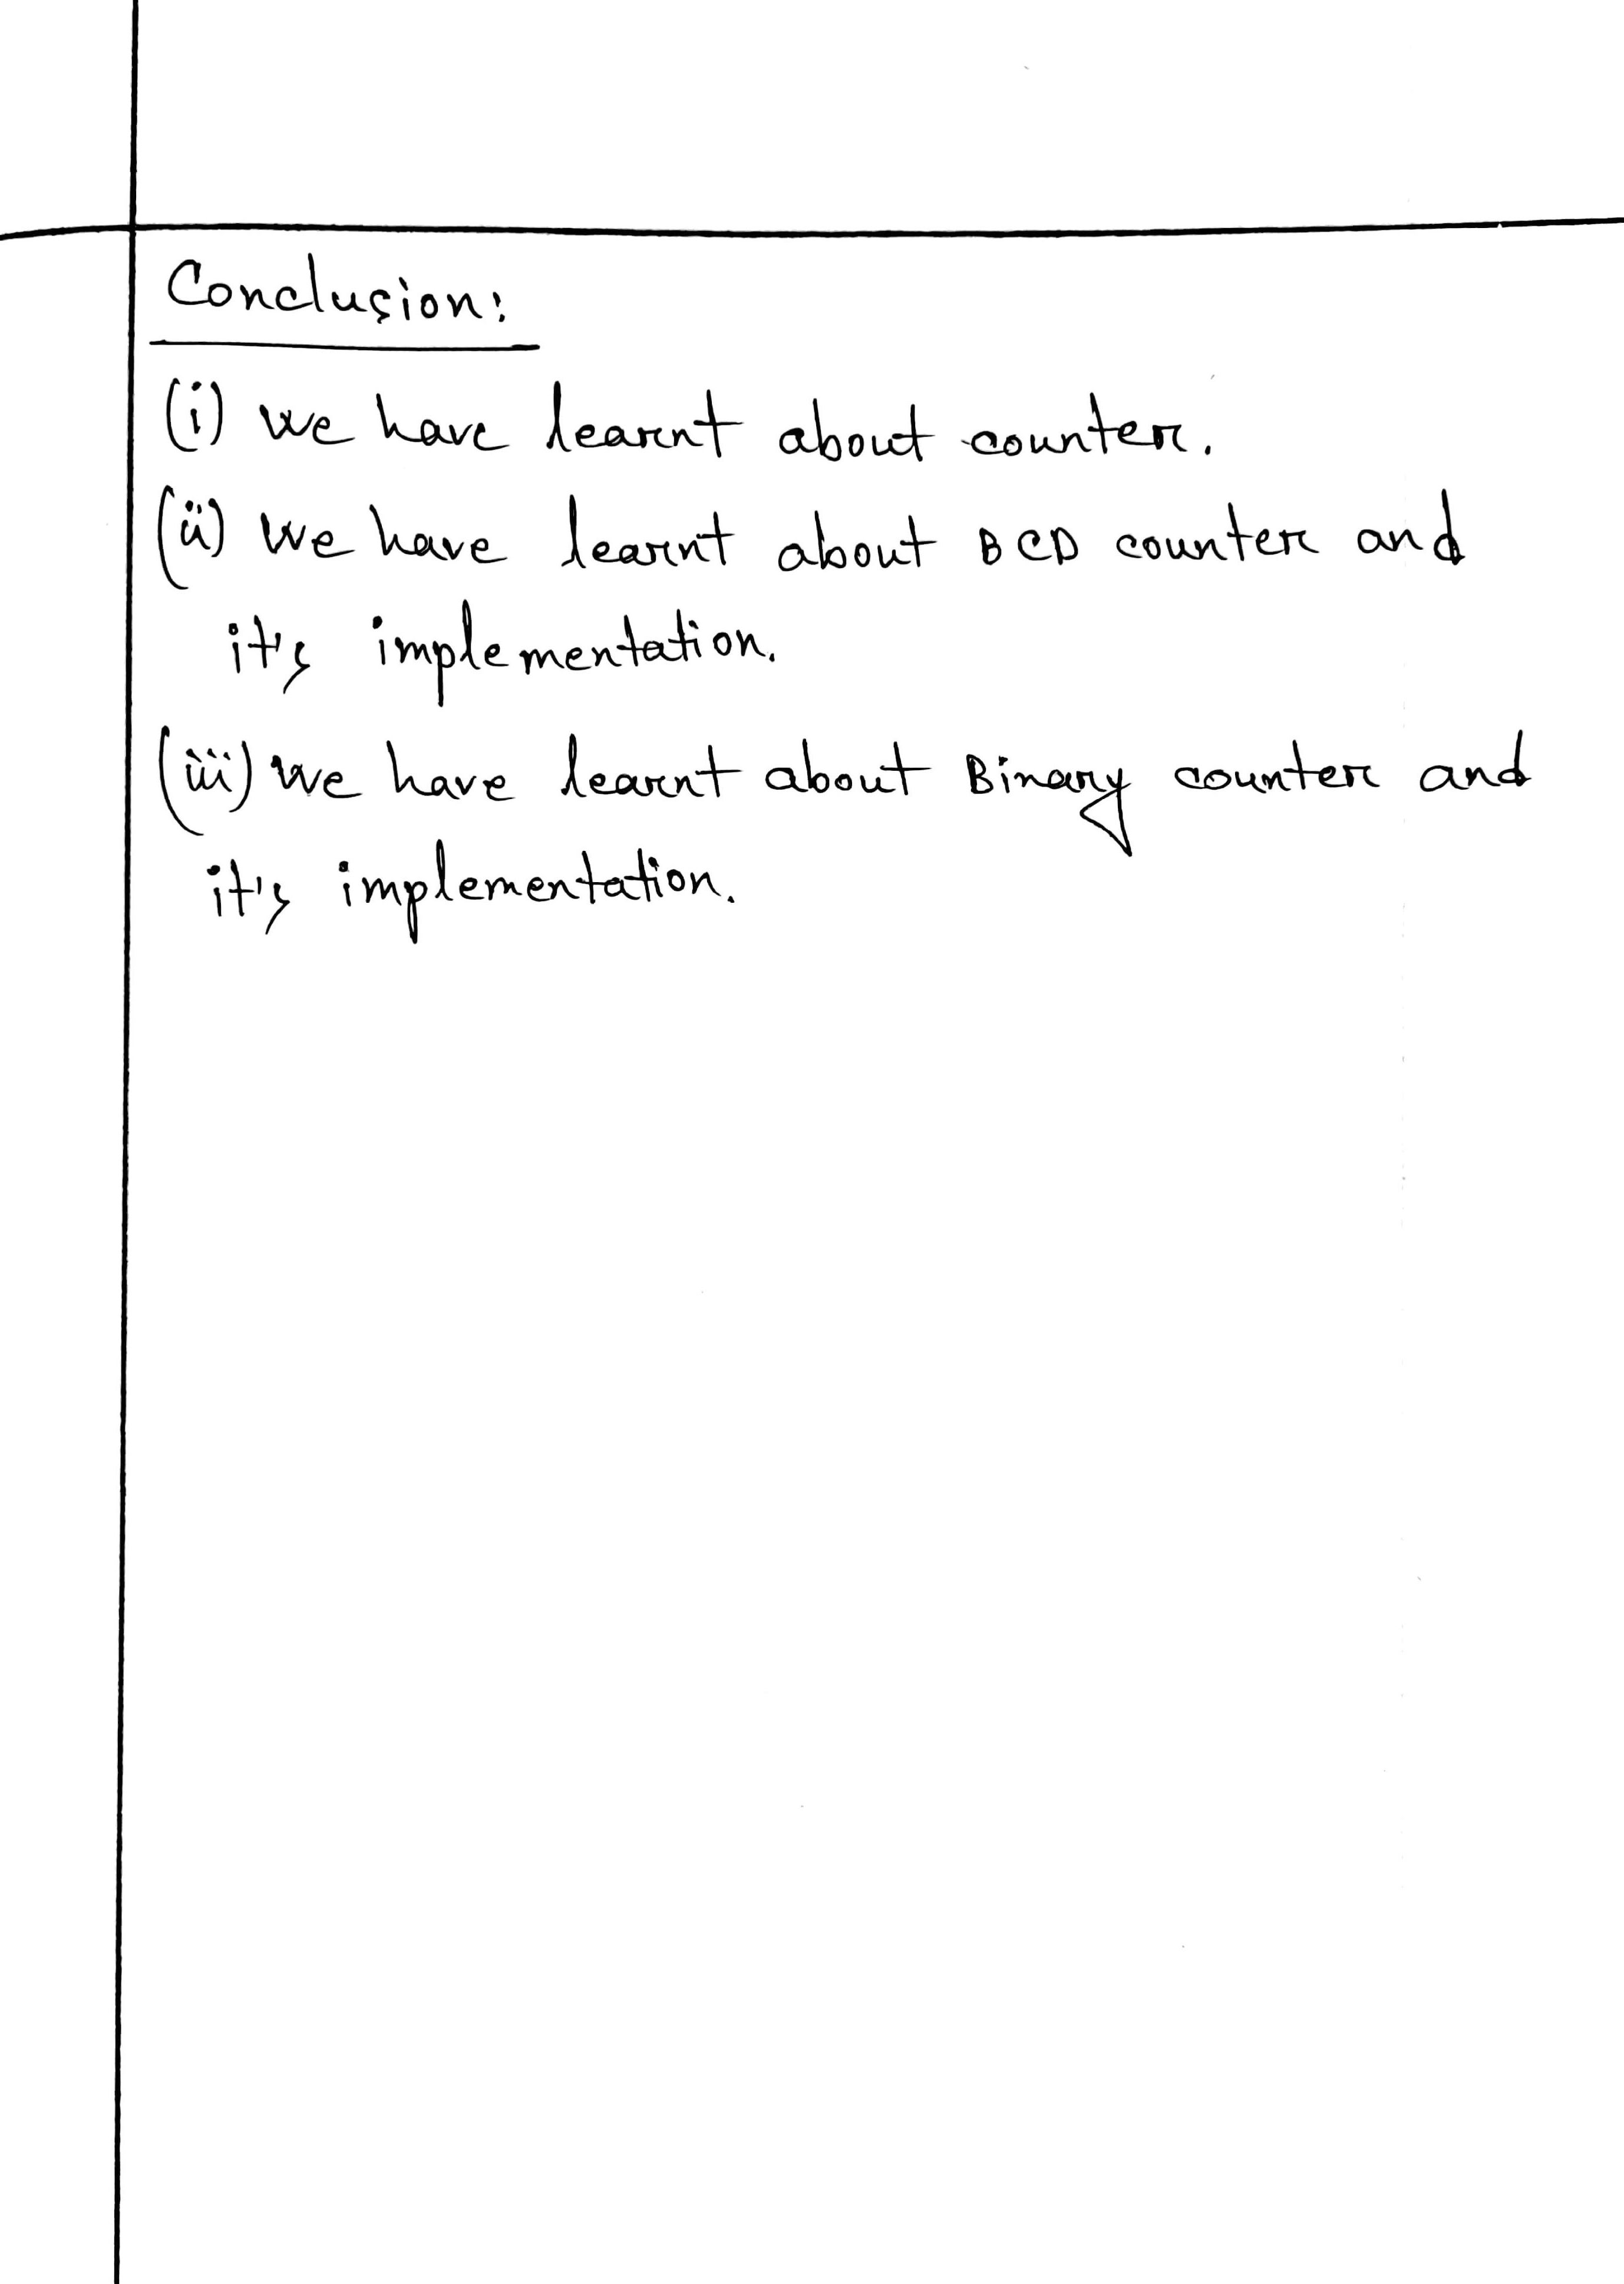 Conclusion:
(i) we have learnt about counter.
(ii) We have learnt about BCD counter and
it's implementation.
(iii) We have learnt about Binary counter and
it's implementation.